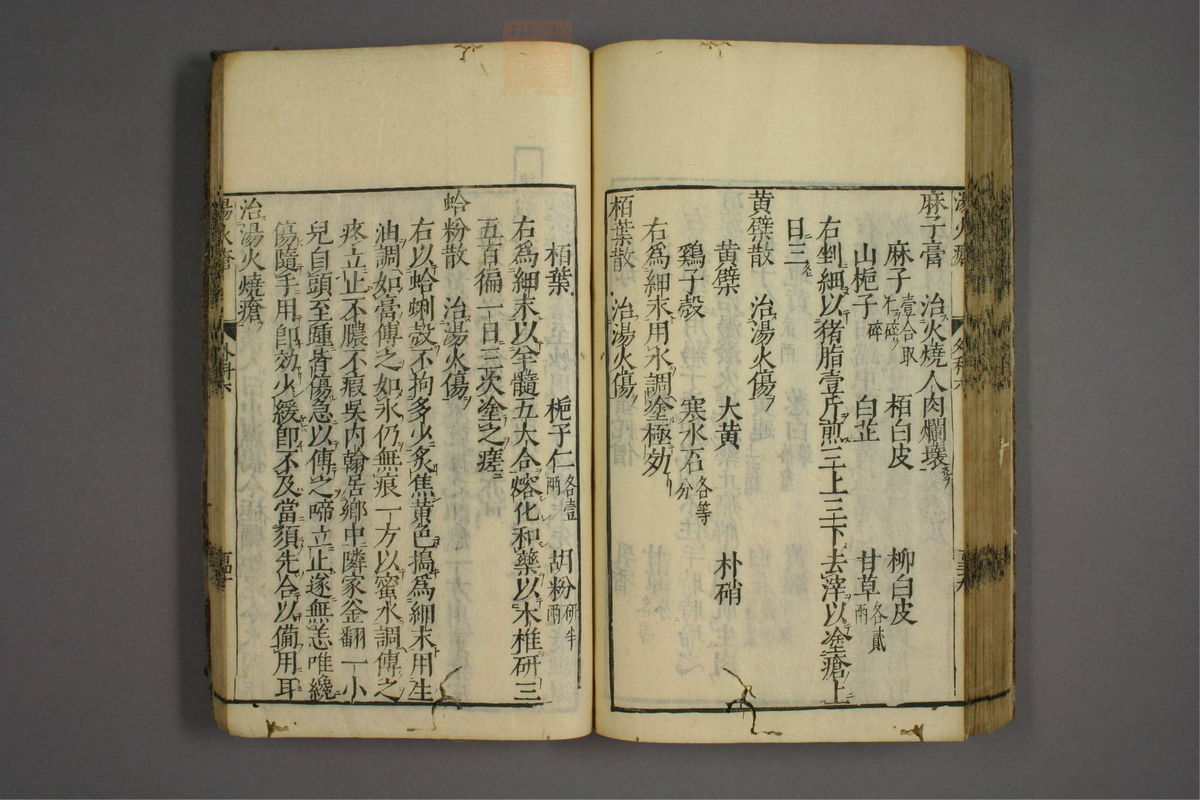 麻子膏　治火燒人肉爛壞
麻子壹合取仁碎　栢白皮　柳白皮
山梔子碎　白芷　甘草各貳兩
右剉細以猪脂壹斤煎三上三下去滓以塗瘡上
日三
黄蘗散　治湯火傷
黄蘗　大黄　朴硝
鷄子殻　寒水石各等分
右爲細末用水調塗極効
栢葉散　治湯火傷
栢葉　梔子仁各壹兩　胡粉研半兩
右爲細末以羊髓五大合熔化和藥以木椎研三
五百徧一日三次塗之瘥
蛤粉散　治湯火傷
右以蛤蜊殻不拘多少炙焦黄色搗爲細末用生
油調如膏傳之如氷仍無痕一方以蜜水調傳之
疼立止不膿不痕吳内翰居鄉中隣家釜翻一小
兒自頭至踵皆傷急以傳之啼立止遂無恙唯纔
傷隨手用卽効少緩卽不及當須先合以備用耳
治湯火燒瘡
湯火瘡　外科六